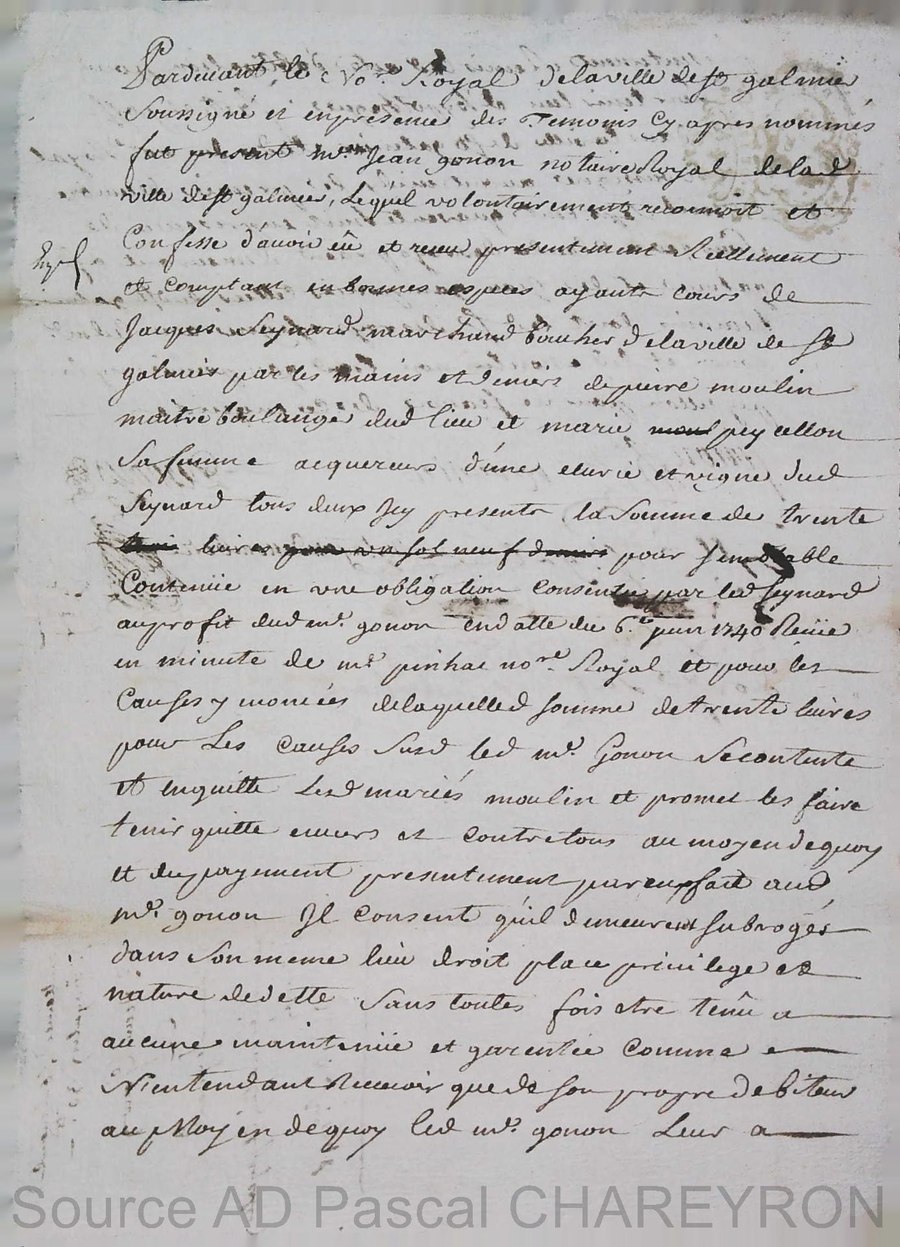 Pardevant le No.re Royal delaville de st galmier
soussigné et enpresence des Temoins cy apres nommés
fut present me. Jean gonon notaire Royal delad
ville de st galmier, Lequel volontairement reconnoit et
Confesse d'avoir eû et receu presentement Reellement
et comptant en bonnes especes ayants cours de
Jacques Seynard marchand boucher delaville de st
galmier par les mains et deniers de pierre moulin
maitre boulangé dud lieu et marie peycellon
Sa femme acquereurs d'une et vigne dud
Seynard tous deux Jcy presents la somme de trente
livres pour semblable
Contenüe en une obligation consentie par led Seynard
auprofit dud me. gonon endatte du 6.e juin 1740 Reüe
en minute de me pinhac no.re Royal et pour les
Causes y moncées delaquelled somme detrente livres
pour Les causes susd led me. Gonon secontente
et enquitte Lesd mariés moulin et promet les faire
tenir quitte envers et contretous au moyen dequoy
et du payement presentement pareux fait aud
me. gonon Jl consent qu'il demeurent subrogés
dans son meme lieu droit place privilege et
nature de dette sans toutes fois etre tenû a
aucune maintenüe et garentée comme
N'entendant Recevoir que de son propre debiteur
au Moyen dequoy led me. gonon Leur a
Source AD Pascal CHAREYRON